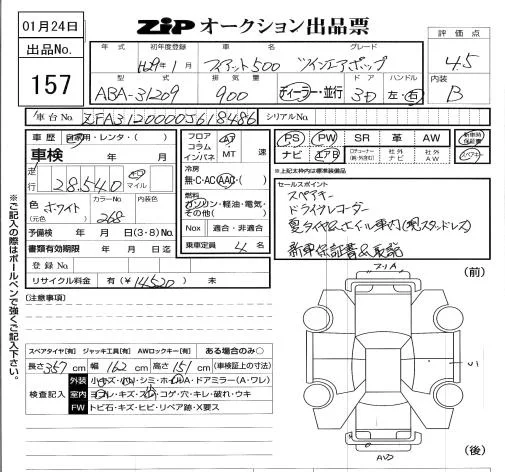 01月24日
ZIP オークション出品票
出品No.
157
年式 初年度登録 車名 グレード
H29年1月 フィアット500 ツインエアポップ
型式 排気量 ドア ハンドル
ABA-31209 900 ディーラー・並行 3D 左・右
評価点
4.5
内装
B
車台No. ZFA3120000J618486 シリアルNo.
車歴 自家用・レンタ・( )
車検 年 月
走行 28540 マイル
色 ホワイト (元色) カラーNo. 268 内装色
予備検 年 月 日(3・8)No.
書類有効期限 年 月 日迄
登録No.
リサイクル料金 有(¥14520) 未
フロア コラム インパネ AT MT 速
冷房
無・C・AC・AAC・( )
燃料
ガソリン・軽油・電気・その他( )
Nox 適合・非適合
乗車定員 4名
PS PW SR 革 AW 新車時保証書
ナビ エアB 社外ナビ 社外AW スペアキー
*上記太枠内は標準装備品
セールスポイント
スペアキー
ドライブレコーダー
夏タイヤ
新車保証書&取説
【注意事項】
スペアタイヤ【有】 ジャッキ工具【有】 AWロックキー【有】 ある場合のみ○
長さ357cm 幅162cm 高さ151cm (車検証上の寸法)
検査記入
外装 小キズ・小凹・シミ・ホイールA・ドアミラー(A・ワレ)
室内 ヨゴレ・キズ・スレ・コゲ・穴・キレ・破れ・ウキ
FW トビ石・キズ・ヒビ・リペア跡・X要ス
(前)
(後)
※ご記入の際はボールペンで強くご記入下さい。